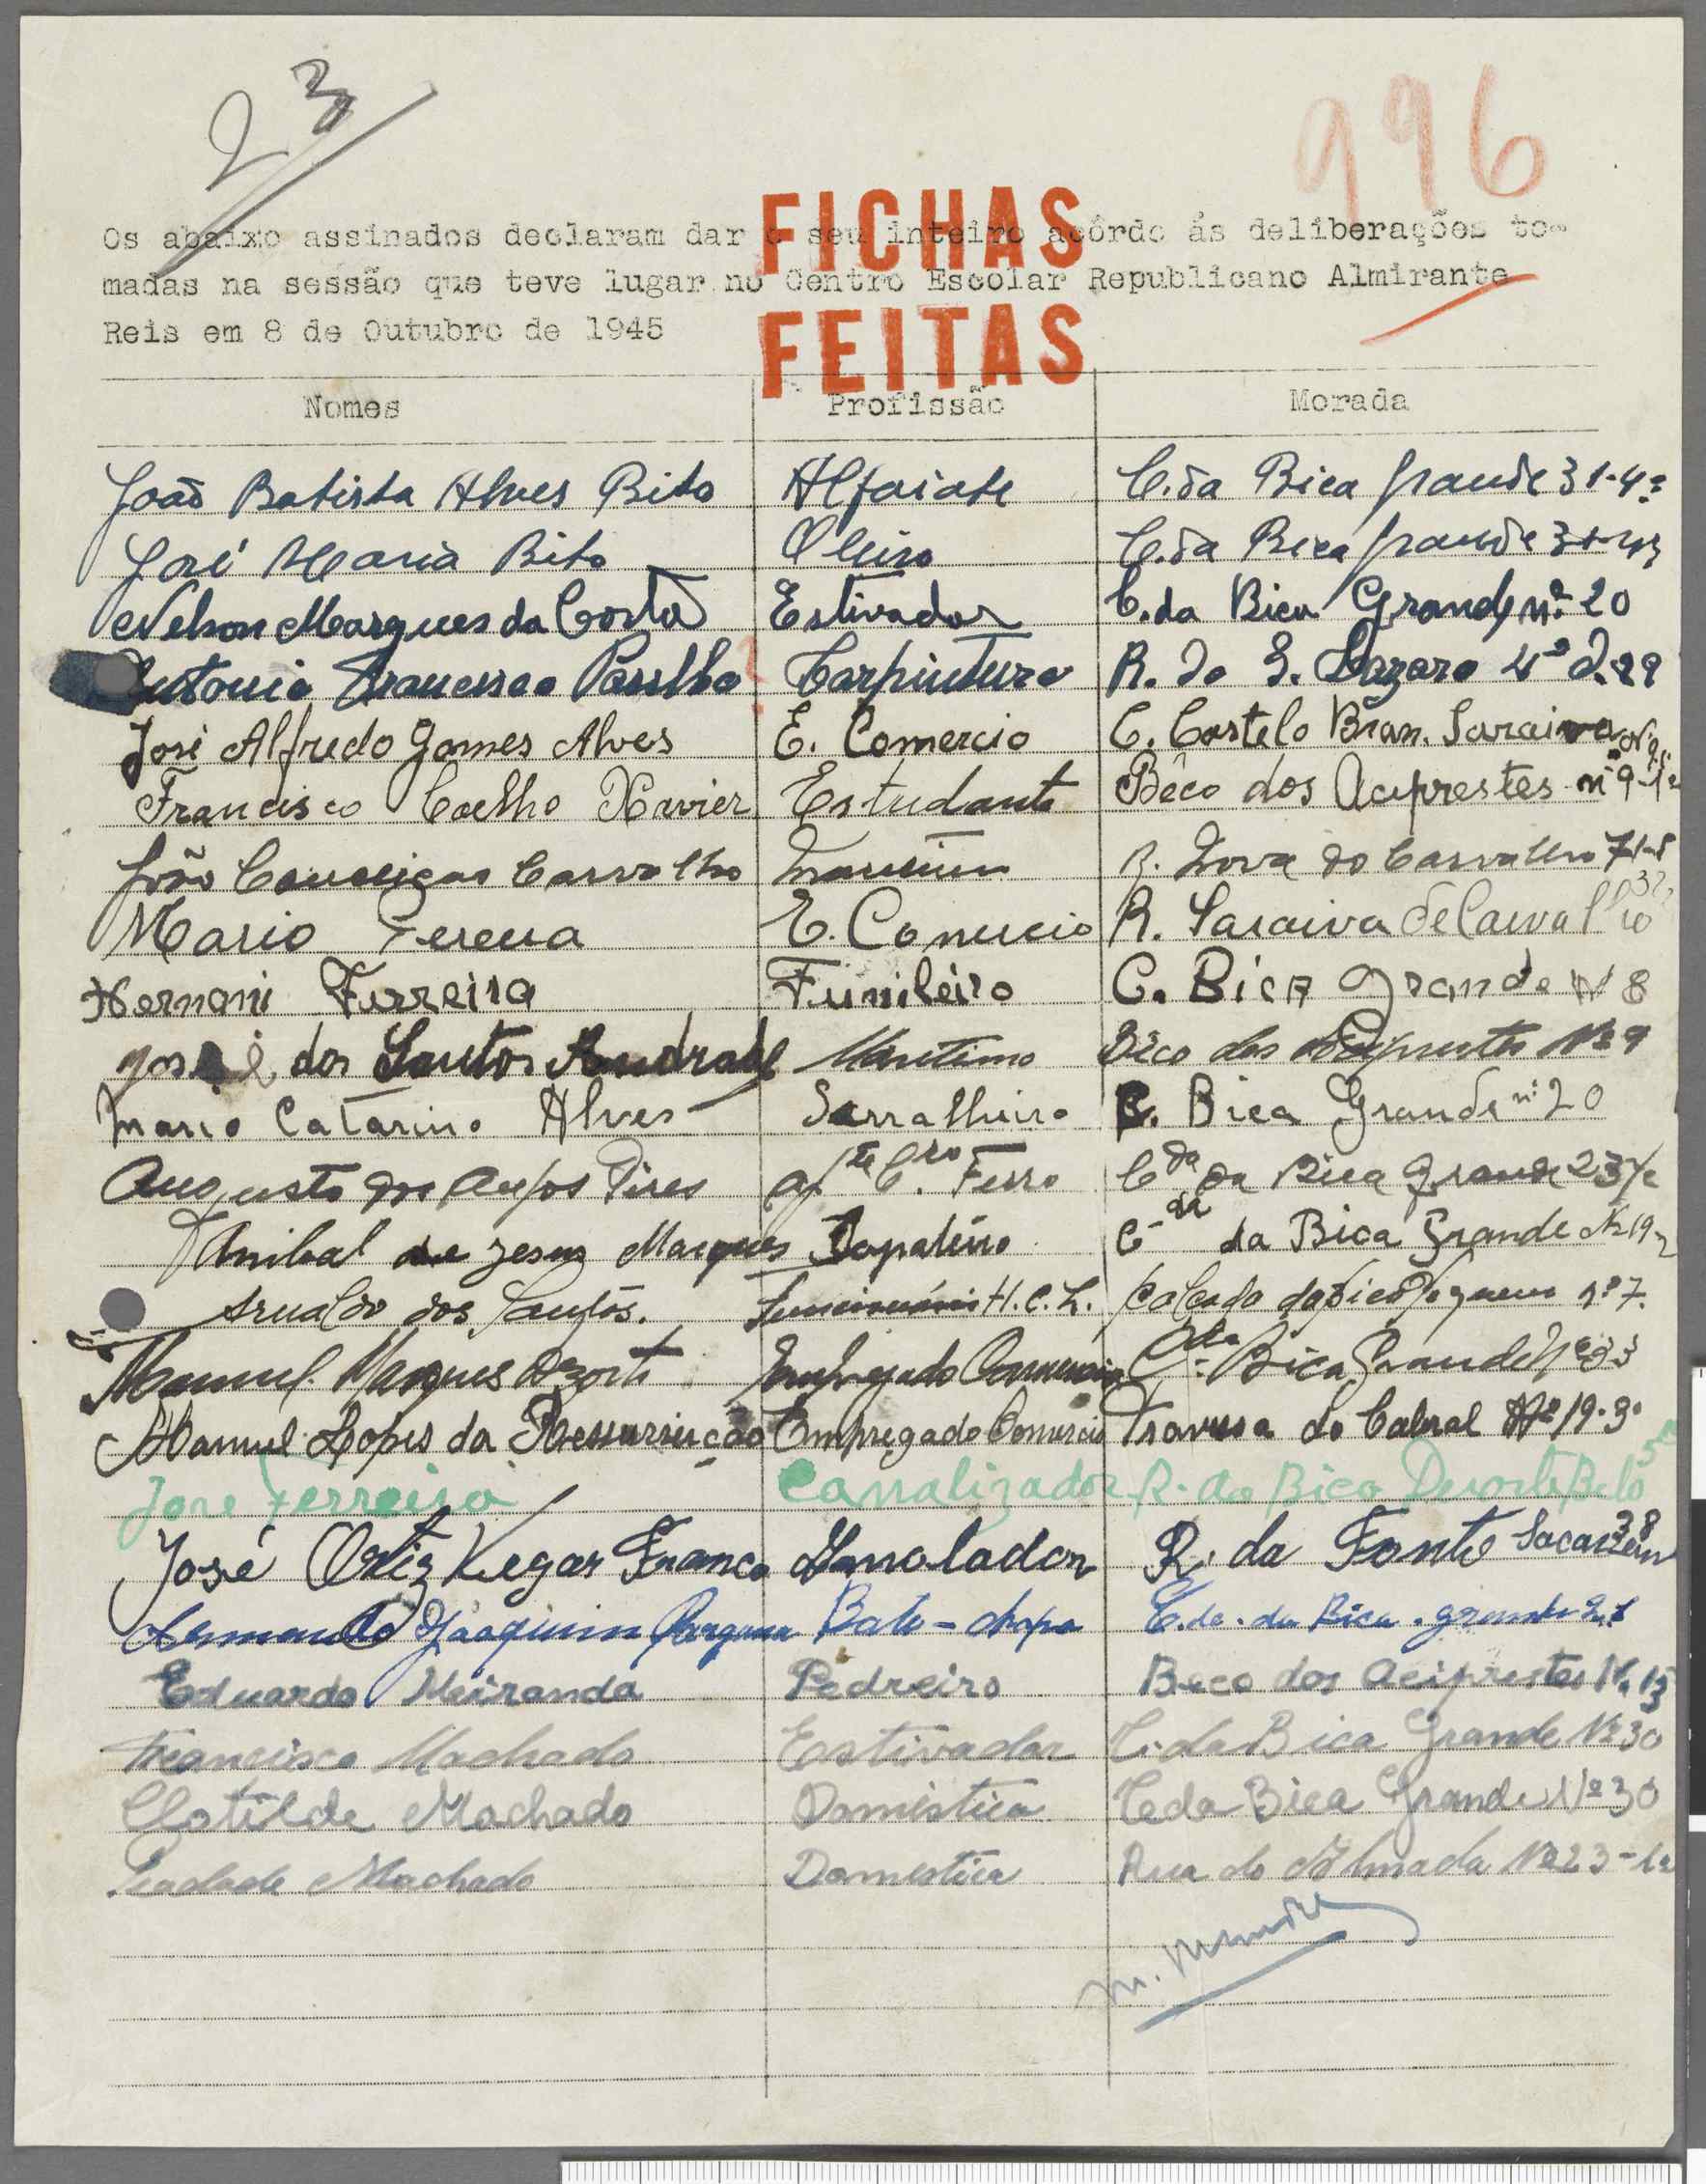 23
996
FICHAS
FEITAS
Os abaixo assinados declaram dar o seu inteiro acôrdo ás deliberações to-
madas na sessão que teve lugar no Centro Escolar Republicano Almirante
Reis em 8 de Outubro de 1945
Nomes Profissão Morada
João Batista Alves Brito Alfaiate C. da Bica Grande 31-4º
José Maria Brito Oleiro C. da Bica Grande
Nelson Marques da Costa Estivador C. da Bica Grande nº 20
Antonio Francisco Carpinteiro R. de S. Lazaro
José Alfredo Gomes Alves E. Comercio C. Castelo Bran. Saraiva
Francisco Coelho Xavier Estudante Bêco dos Aciprestes nº 9-1º
João Conceição Carvalho R. Nova do Carvalho 71
Mario Pereira E. Comercio R. Saraiva de Carvalho
Hernani Ferreira Funileiro C. Bica Grande Nº 8
José dos Santos Andrade Maritimo Bêco dos Aciprestes Nº 9
Mario Catarino Alves Serralheiro C. Bica Grande nº 20
Augusto dos Anjos Pires Cda da Bica Grande 23
Anibal de Jesus Marques Sapateiro Cda da Bica Grande Nº 19-2
Arnaldo dos Santos. Funcionário H.C.L. Calçada da Bica Pequena nº 7.
Manuel Marques Empregado Comercio Cda Bica Grande Nº
Manuel Lopes da Ressurreição Empregado Comercio Travessa do Cabral Nº 19-3º
José Ferreira Canalizador R. da Bica Duarte Belo
José Ortiz Franco R. da Fonte Sacavem 38
Joaquim Bate-chapa C.da da Bica grande
Eduardo Meiranda Pedreiro Beco dos Aciprestes Nº 13
Francisco Machado Estivador C. da Bica Grande Nº 30
Clotilde Machado Domestica C. da Bica Grande Nº 30
Machado Domestica Rua do Almada Nº 23-1º